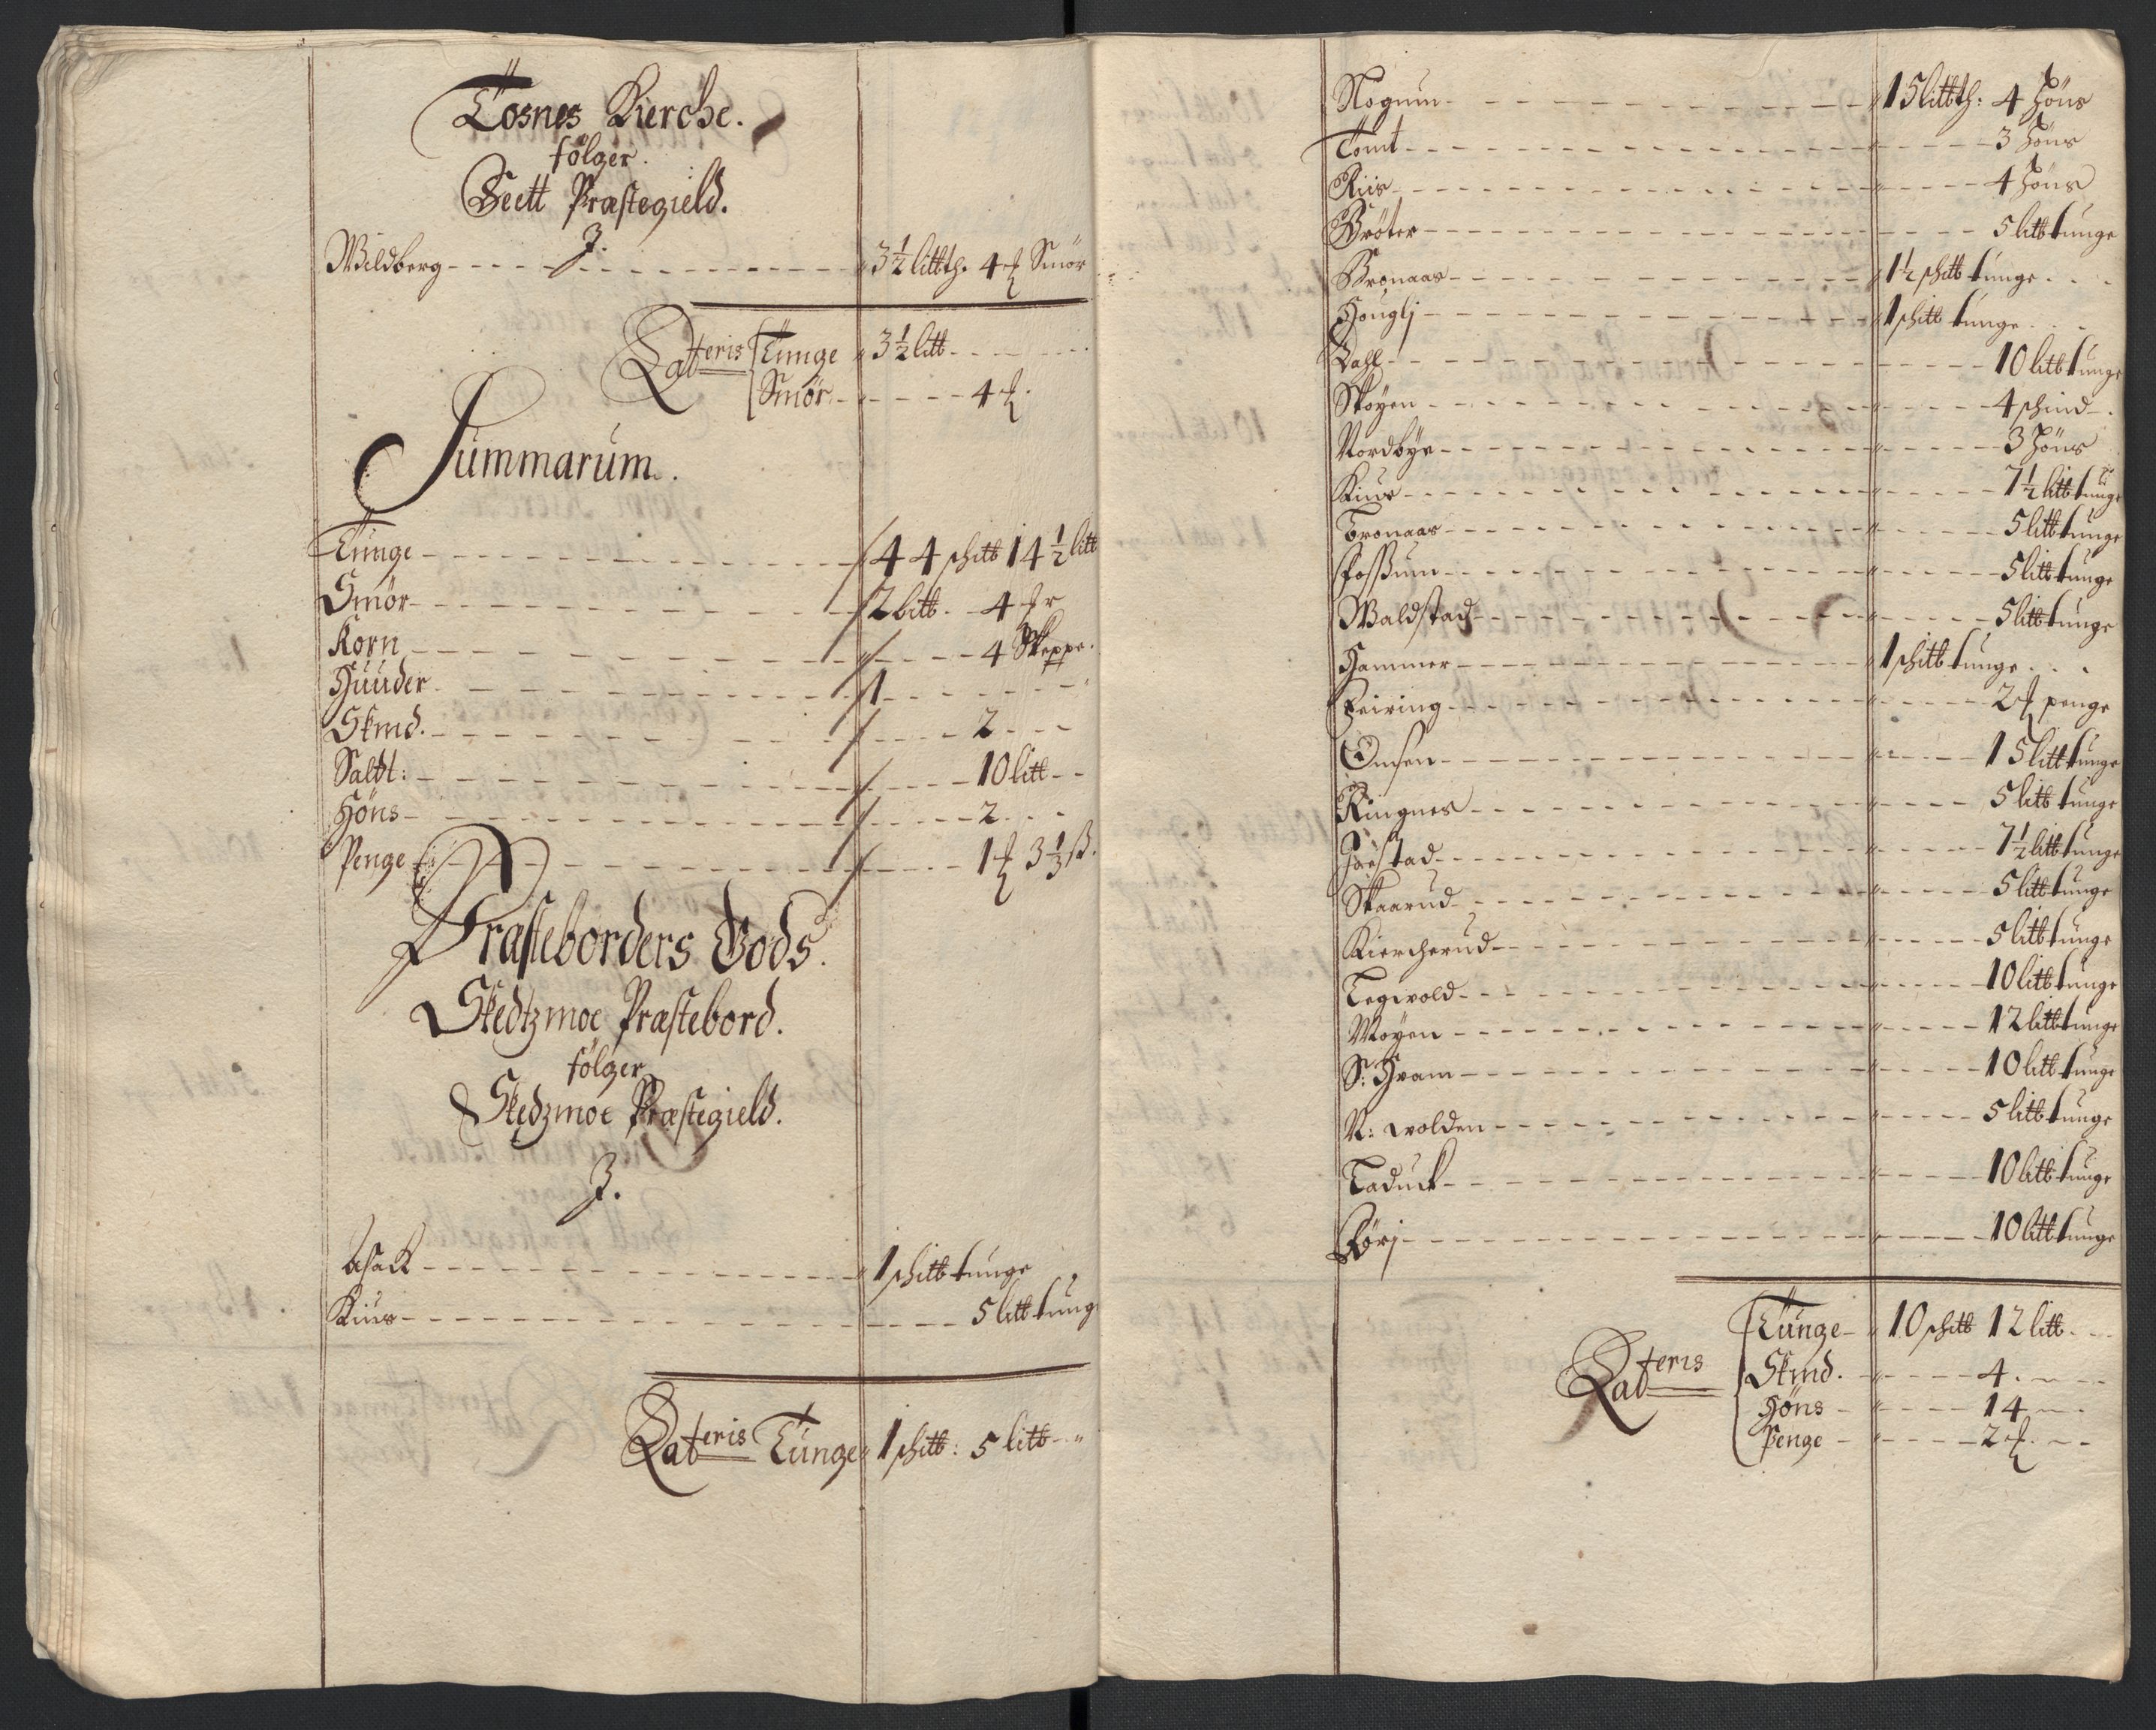 Tosnes Kierche.
følger.
Seett Præstegield.
J.
Wildberg - - - 3½ litth. 4 ℔ Smör
Lateris Tunge 3½ litt - - -
Smör - - - 4 ℔.
Summarum.
Tunge - - - 44 schitt 14½ litt
Smör - - - 2 litt. 4 ℔r
Korn - - - 4 Skeppe.
Huuder - - - 1
Skind. - - - 2
Saldt: - - - 10 litt
Höns - - - 2
Penge - - - 1 ℔ 3⅓ ß.
Præsteborders Gods.
Skedtzmoe Præstebord.
følger
Skedzmoe Præstegield.
J.
Asack - - - 1 schitt tunge
Kius - - - 5 litt tunge
Lateris Tunge 1 schitt: 5 litt
Nogum - - - 15 litth: 4 Höns
Tomt - - - 3 Höns
Riis - - - 4 Höns
Brøter - - - 5 litt tunge
Bronaas - - - 1½ schitt tunge
Houglj - - - 1 schitt tunge
Dahl - - - 10 litt tunge
Skøyen - - - 4 schind
Nordbye - - - 3 Höns
Kius - - - 7½ litt tunge
Tronaas - - - 5 litt tunge
Fossum - - - 5 litt tunge
Waldstad - - - 5 litt tunge
Hammer - - - 1 schitt tunge
Feiring - - - 2 ℔ penge
Onsen - - - 15 litt tunge
Ringnes - - - 5 litt tunge
Joestad - - - 7½ litt tunge
Skaarud - - - 5 litt tunge
Kiercherud - - - 5 litt tunge
Tegwold - - - 10 litt tunge
Moyen - - - 12 litt tunge
S: Hvam - - - 10 litt tunge
N: wolden - - - 5 litt tunge
Taduck - - - 10 litt tunge
Børj - - - 10 litt tunge
Lateris Tunge - 10 schitt 12 litt
Skind. - - - 4
Höns - - - 14
Penge - - - 2 ℔